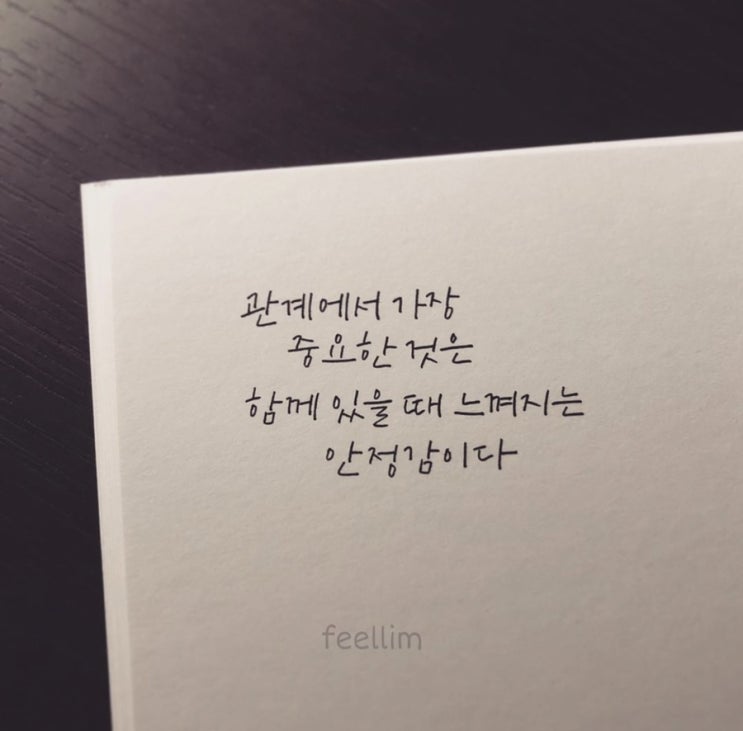 관계에서 가장
중요한 것은
함께 있을 때 느껴지는
안정감이다
feellim